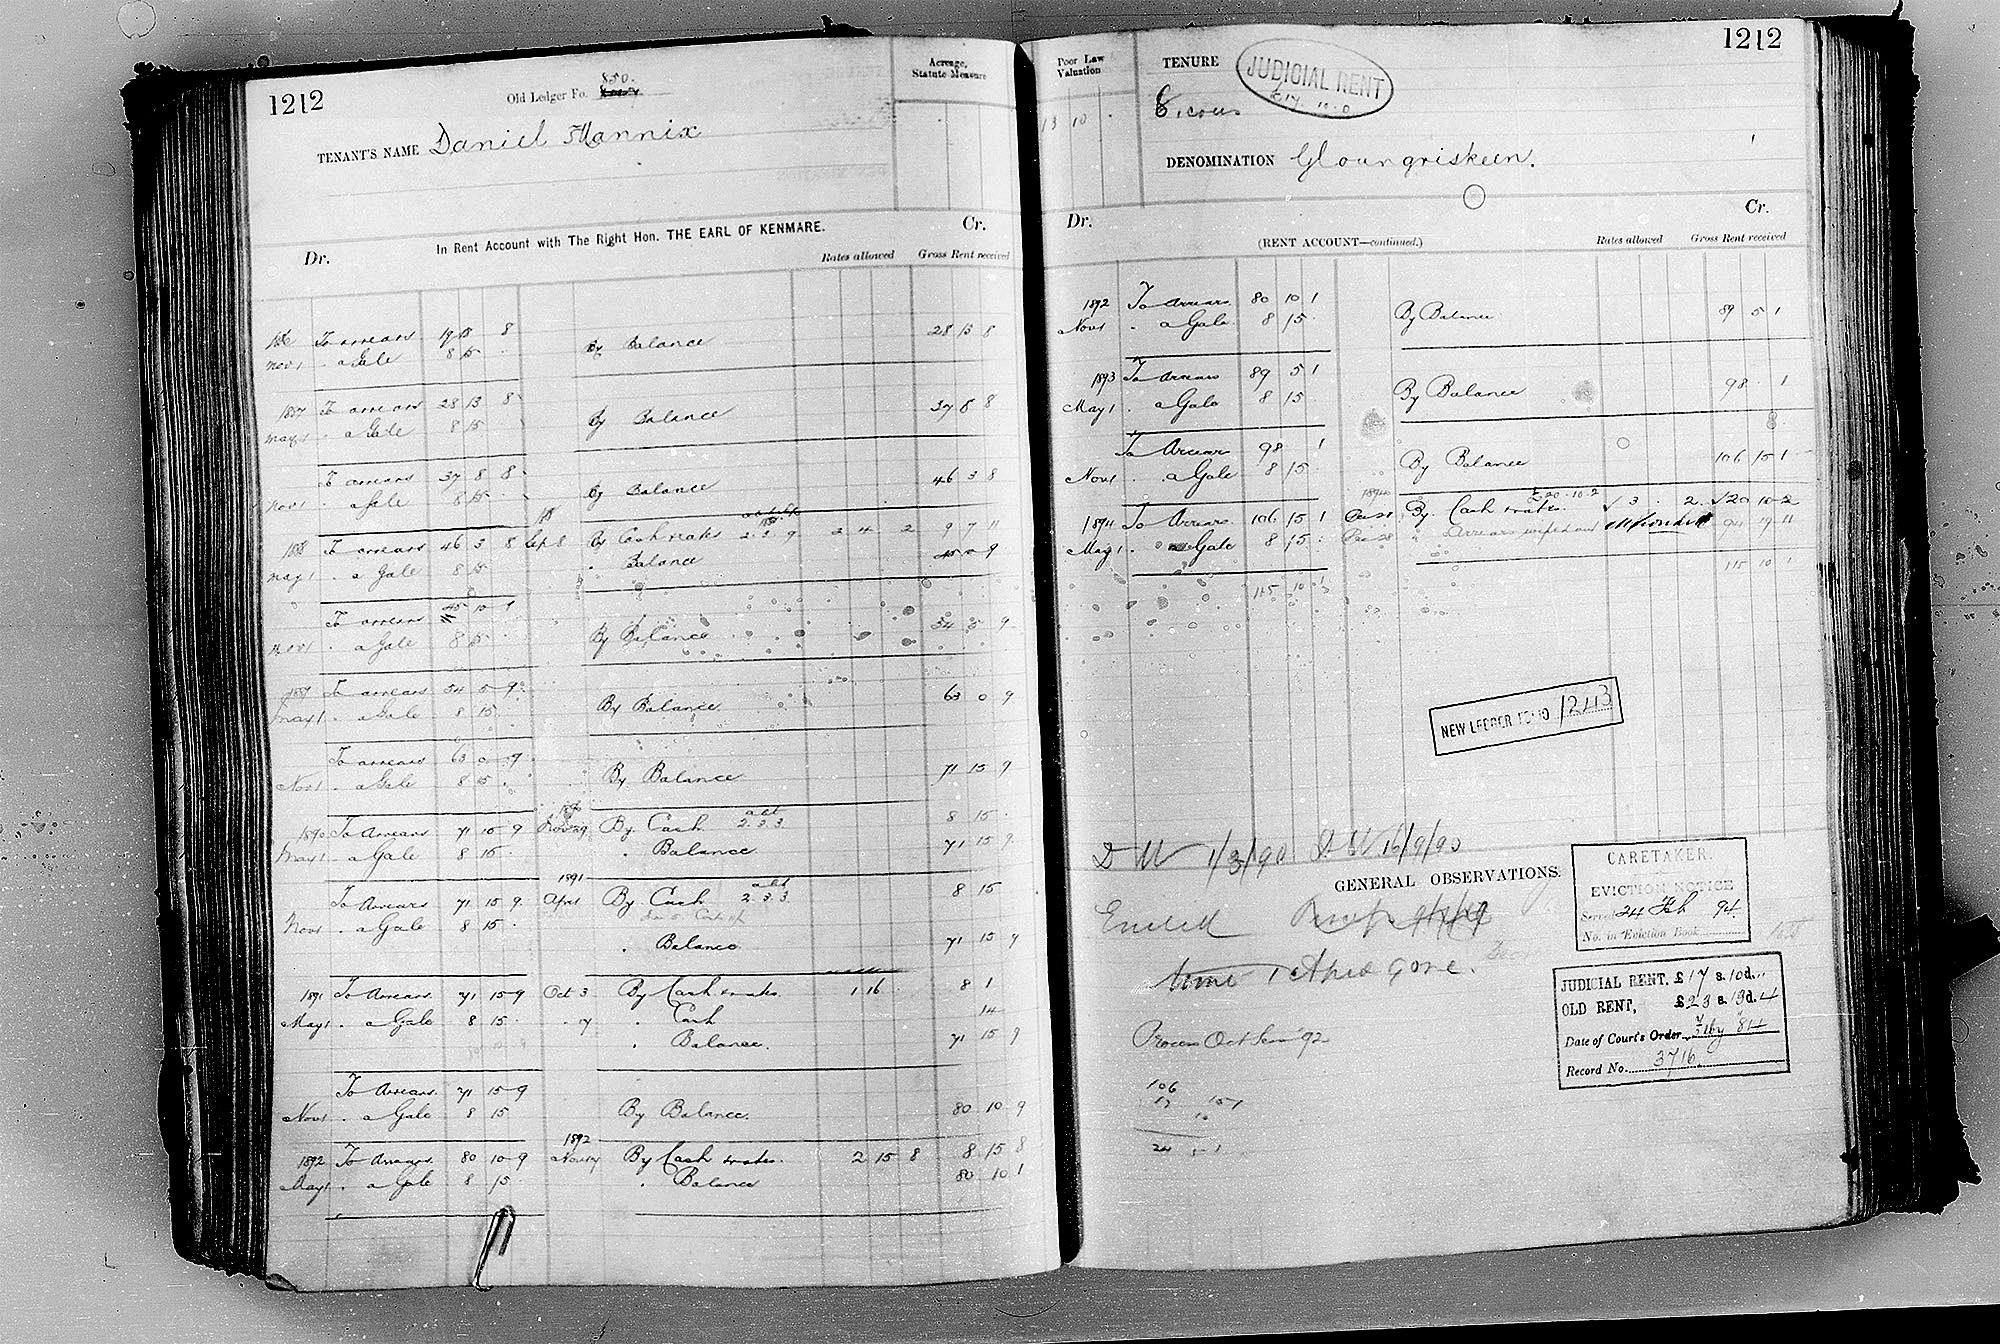 1212
850.
Old Ledger Fo.
TENANT'S NAME Daniel Mannix
Acreage,
Statute Measure
In Rent Account with The Right Hon. THE EARL OF KENMARE.
Dr. Cr.
Rates allowed Gross Rent received
To arrears 19 18 8
Nov 1 . a Gale 8 15 . By Balance 28 13 8
1887 To arrears 28 13 8
May 1 . a Gale 8 15 By Balance 37 8 8
To arrears 37 8 8
Nov 1 a Gale 8 15 By Balance 46 3 8
1888 To arrears 46 3 8 Sep 8 By Cash rates 2.3.9 2 4 2 9 7 11
May 1 . a Gale 8 15 . Balance 45 10 9
To arrears 45 10 9
Nov 1 a Gale 8 15 By Balance 54 5 9
1889 To arrears 54 5 9
May 1 . a Gale 8 15 By Balance 63 0 9
To arrears 63 0 9
Nov 1 . a Gale 8 15 . By Balance 71 15 9
1890
1890 To Arrears 71 15 9 Nov 29 By Cash 2.3.3 8 15 .
May 1 . a Gale 8 15 . . Balance 71 15 9
1891
To Arrears 71 15 9 April By Cash 2.3.3 8 15
Nov 1 . a Gale 8 15 .
. Balance 71 15 9
1891 To Arrears 71 15 9 Oct 3 By Cash & rates 1 16 . 8 1
May 1 . a Gale 8 15 . . 17 . Cash 14
. Balance. 71 15 9
To Arrears 71 15 9
Nov 1 . a Gale 8 15 By Balance. 80 10 9
1892
1892 To Arrears 80 10 9 By Cash & rates. 2 15 8 8 15 8
May 1 . a Gale 8 15 . . Balance 80 10 1
1212
Poor Law
Valuation
13 10 .
TENURE
JUDICIAL RENT
£17. 10. 0
DENOMINATION Gloungriskeen.
Dr. Cr.
(RENT ACCOUNT—continued.)
Rates allowed Gross Rent received
1892 To Arrears 80 10 1
Nov 1 . a Gale 8 15 . By Balance 89 5 1
1893 To Arrears 89 5 1
May 1 . a Gale 8 15 By Balance 98 . 1
To Arrear 98 1
Nov 1 . a Gale 8 15 By Balance 106 15 1
1894 £20.10.2
1894 To Arrears 106 15 1 By Cash & rates. 3 . 2 20 10 2
May 1 . a Gale 8 15 . Arrears wiped out 94 19 11
115 10 1 115 10 1
NEW LEDGER FOLIO 1213
1/3/90 16/9/90
GENERAL OBSERVATIONS.
CARETAKER.
EVICTION NOTICE
Served 24 Feb 94
No. in Eviction Book
JUDICIAL RENT, £17 s. 10 d. ..
OLD RENT, £23 s. 19 d. 4
Date of Court's Order 84
Record No. 3716
Process Oct 92
106